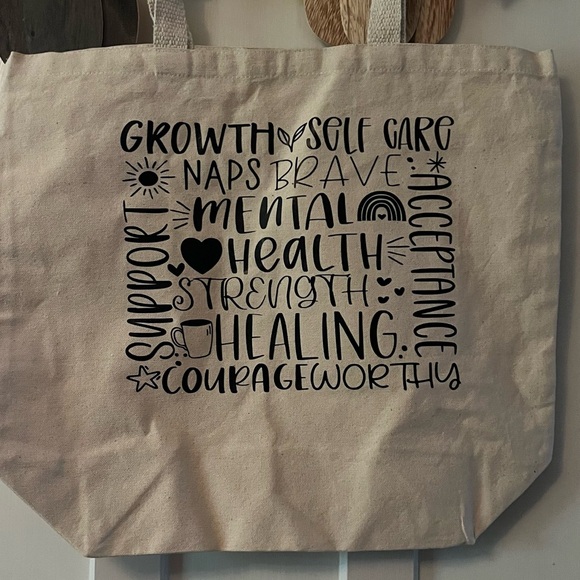 GROWTH SELF CARE
NAPS BRAVE
MENTAL
HEALTH
STRENGTH
HEALING
COURAGE WORTHY
SUPPORT
ACCEPTANCE